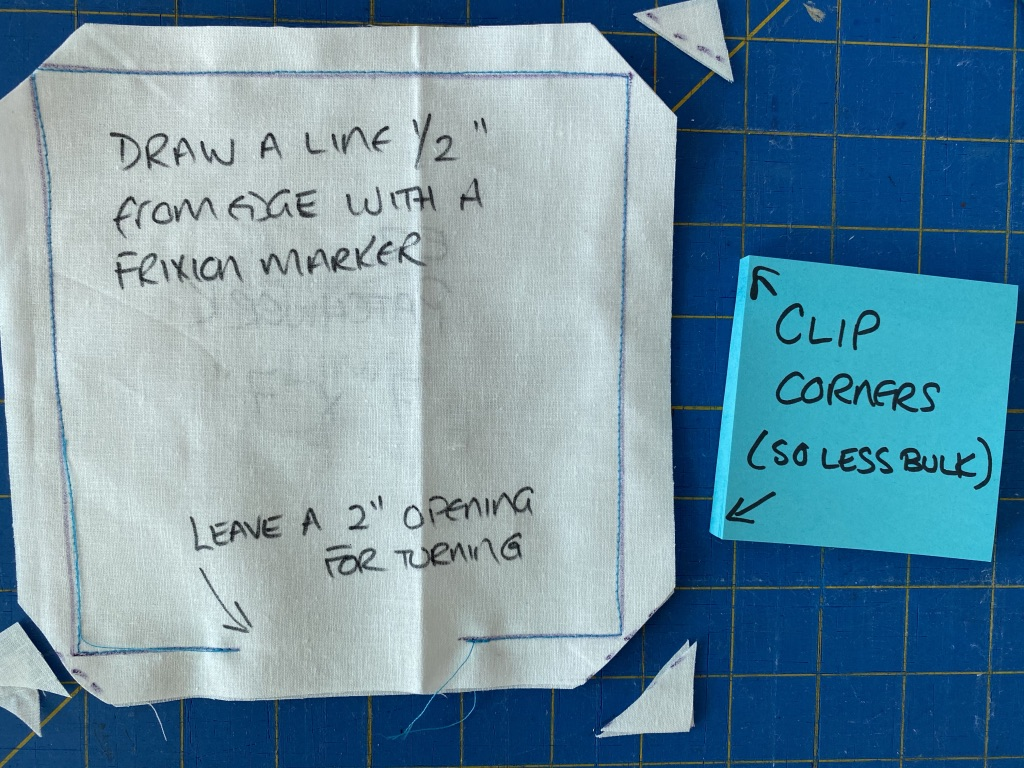 DRAW A LINE 1/2"
FROM EDGE WITH A
FRIXION MARKER
PATCHWORK
LEAVE A 2" OPENING
FOR TURNING
CLIP
CORNERS
(SO LESS BULK)